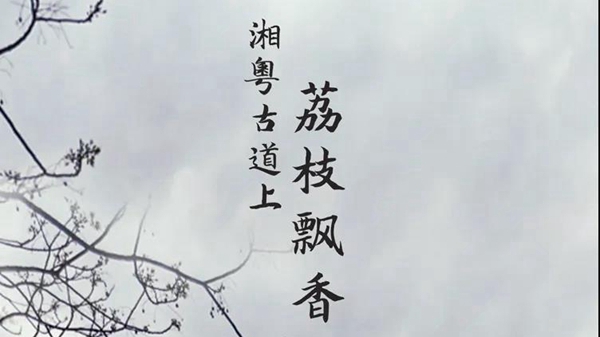 湘粤古道上
荔枝飘香